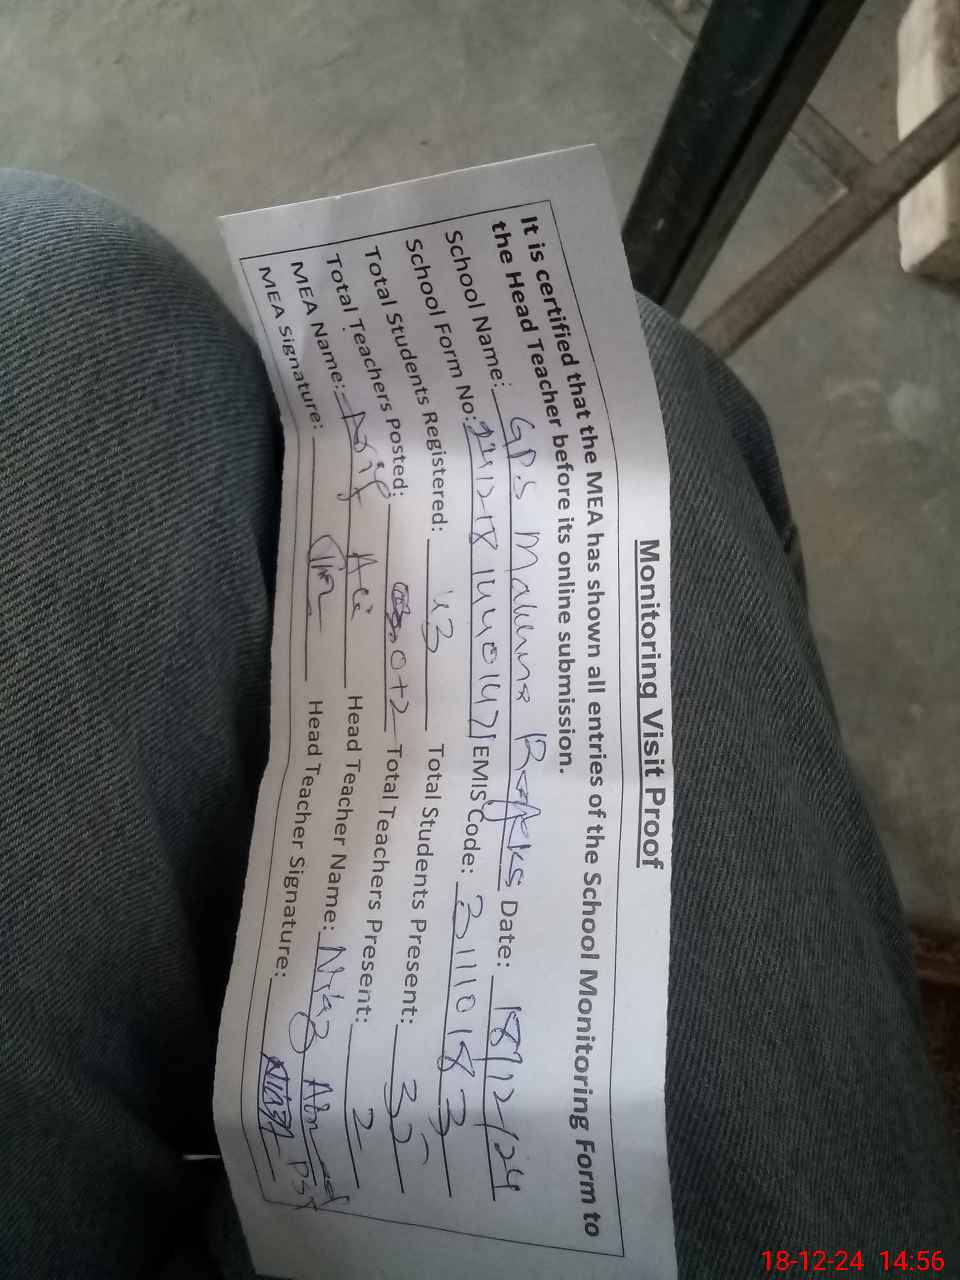 Monitoring Visit Proof
It is certified that the MEA has shown all entries of the School Monitoring Form to
the Head Teacher before its online submission.
School Name: G.P.S Date: 18/12/24
School Form No: EMIS Code: 31110183
Total Students Registered: Total Students Present: 35
Total Teachers Posted: 0+2 Total Teachers Present: 2
MEA Name: Asif Ali Head Teacher Name: Niaz PST
MEA Signature: Head Teacher Signature:
18-12-24 14:56